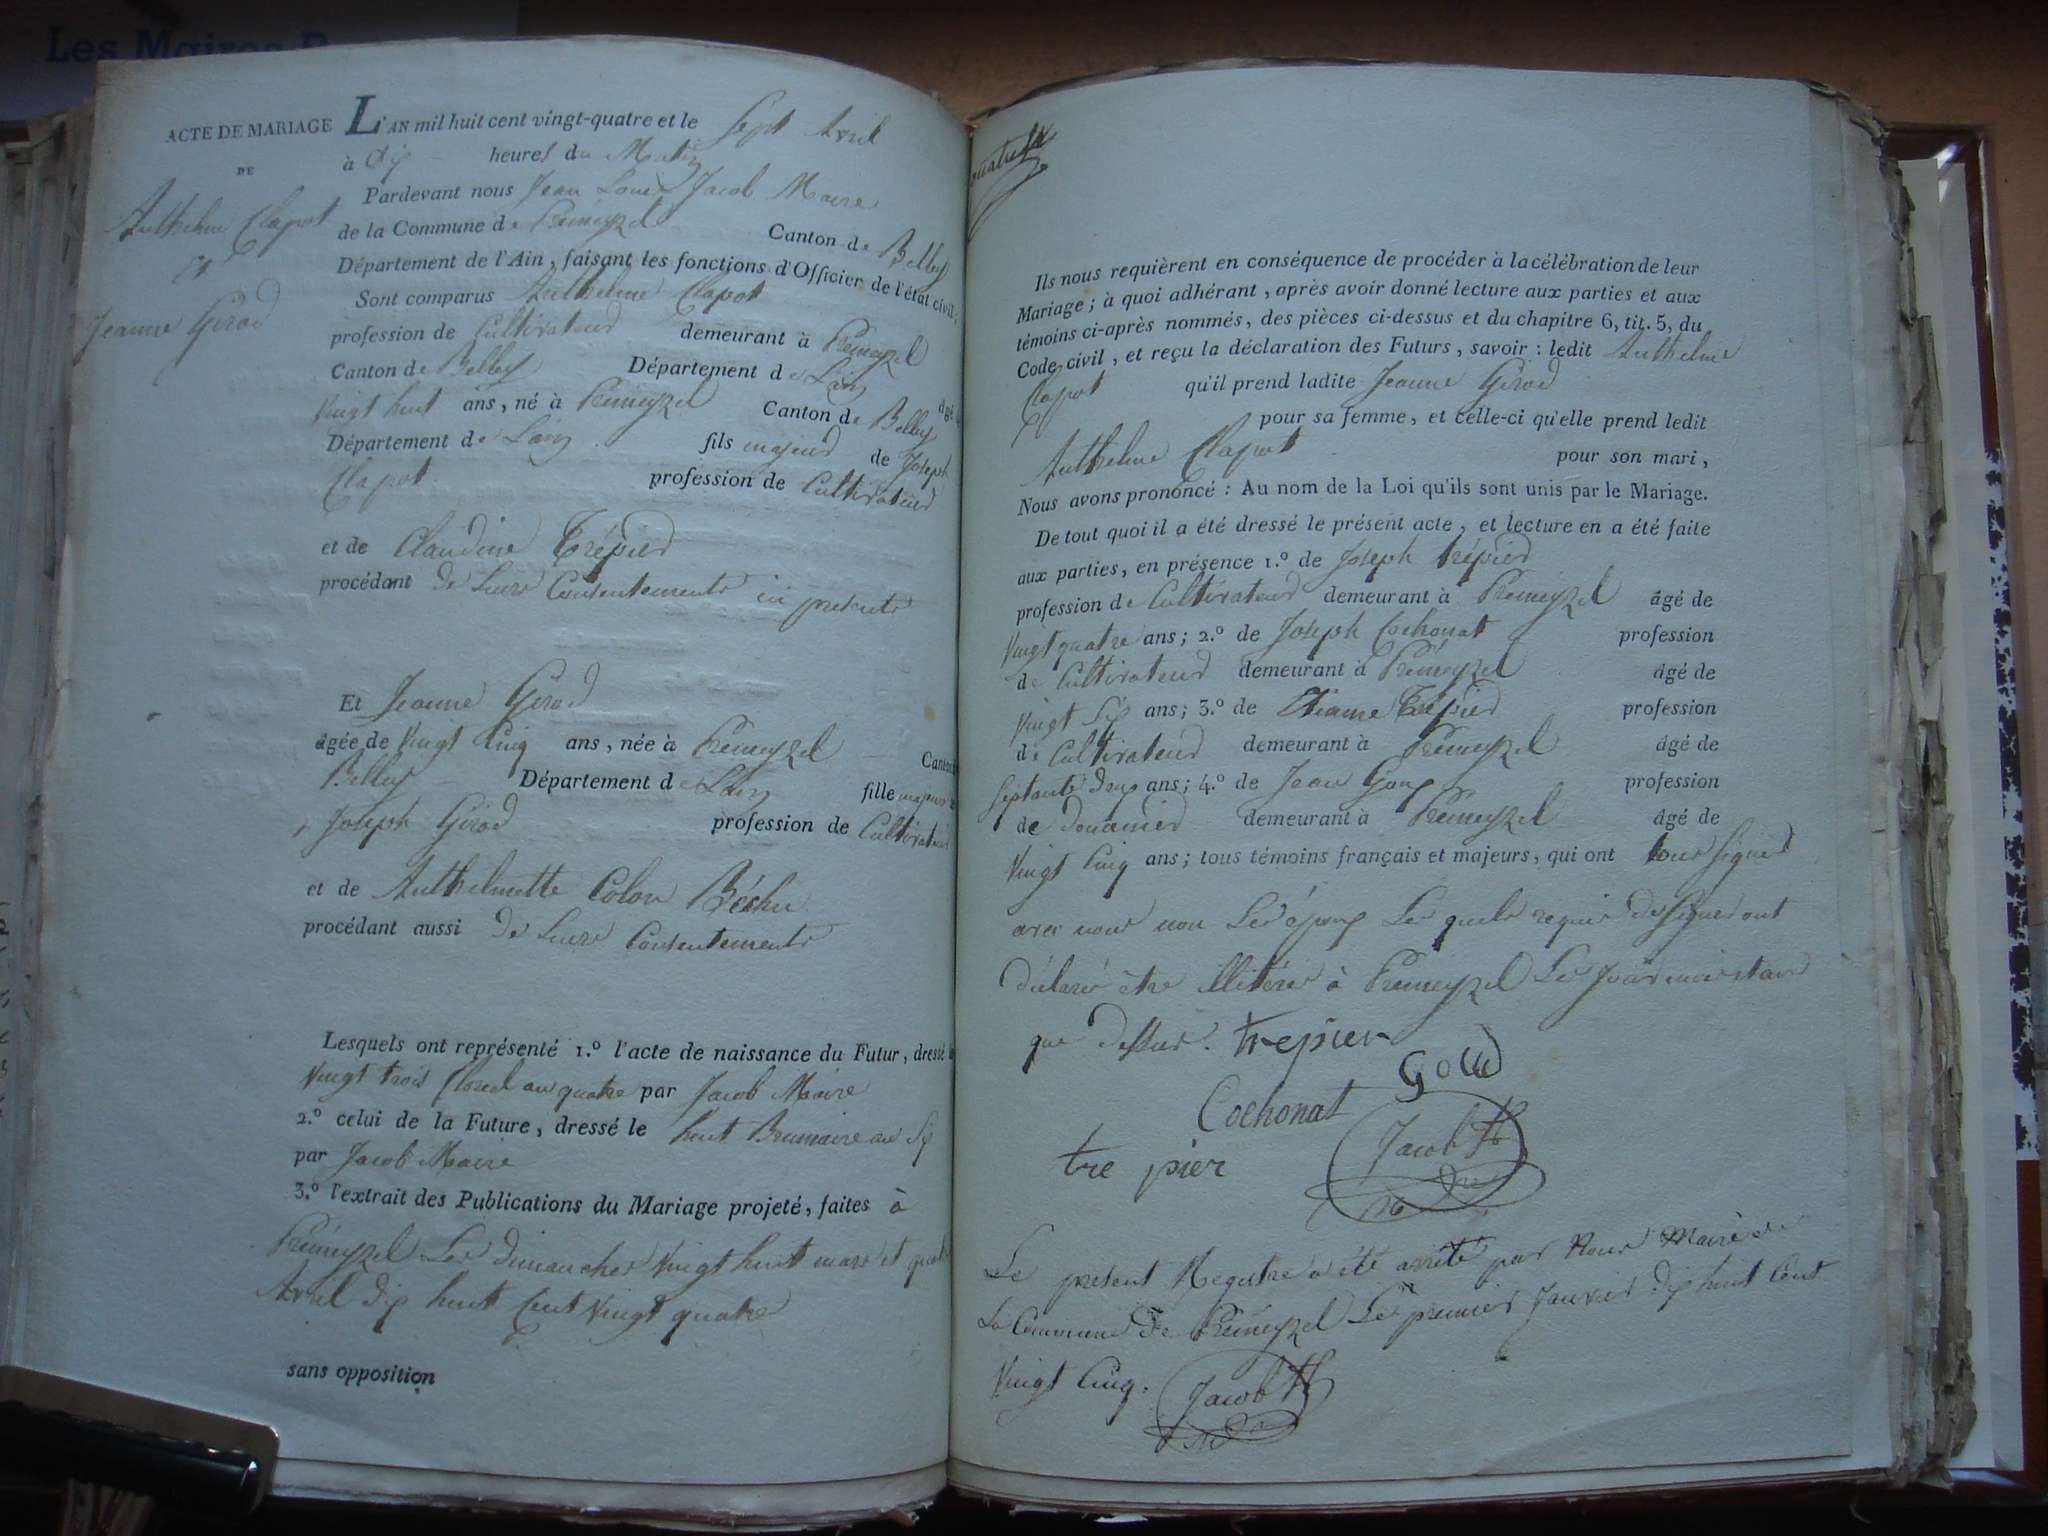 Les Maires
ACTE DE MARIAGE
DE
Anthelme Clapot
et
Jeanne Girod
L'AN mil huit cent vingt-quatre et le Sept Avril
à dix heures du Matin
Pardevant nous Jean Louis Jacob Maire
de la Commune de Prémeyzel Canton de Belley
Département de l'Ain, faisant les fonctions d'Officier de l'état civil,
Sont comparus Anthelme Clapot
profession de Cultivateur demeurant à Prémeyzel
Canton de Belley Département de Lain âgé
vingt huit ans, né à Prémeyzel Canton de Belley
Département de Lain fils majeur de Joseph
Clapot profession de Cultivateur
et de Claudine Trépier
procédant de Leurs Consentements ici presents
Et Jeanne Girod
âgée de vingt Cinq ans, née à Prémeyzel Canton
Belley Département de Lain fille majeure
Joseph Girod profession de Cultivateur
et de Anthelmette Colon Béchu
procédant aussi de Leurs Consentements
Lesquels ont représenté 1.º l'acte de naissance du Futur, dressé le
vingt trois floreal an quatre par Jacob Maire
2.º celui de la Future, dressé le huit Brumaire an six
par Jacob Maire
3.º l'extrait des Publications du Mariage projeté, faites à
Prémeyzel Les dimanches vingt huit mars et quatre
Avril dix huit Cent vingt quatre
sans opposition
quatre
Ils nous requièrent en conséquence de procéder à la célébration de leur
Mariage; à quoi adhérant, après avoir donné lecture aux parties et aux
témoins ci-après nommés, des pièces ci-dessus et du chapitre 6, tit. 5, du
Code civil, et reçu la déclaration des Futurs, savoir: ledit Anthelme
Clapot qu'il prend ladite Jeanne Girod
pour sa femme, et celle-ci qu'elle prend ledit
Anthelme Clapot pour son mari,
Nous avons prononcé: Au nom de la Loi qu'ils sont unis par le Mariage.
De tout quoi il a été dressé le présent acte, et lecture en a été faite
aux parties, en présence 1.º de Joseph trépier
profession de Cultivateur demeurant à Prémeyzel âgé de
vingt quatre ans; 2.º de Joseph Cochonat profession
de Cultivateur demeurant à Prémeyzel âgé de
vingt six ans; 3.º de Etienne Trépier profession
de Cultivateur demeurant à Prémeyzel âgé de
Septante deux ans; 4.º de Jean profession
de douanier demeurant à Prémeyzel âgé de
vingt Cinq ans; tous témoins français et majeurs, qui ont tous Signé
avec nous non Les époux Les quels requis de Signer ont
déclaré être illitéré à Prémeyzel Les jour mois et an
que dessus. trepier
Cochonat
tre pier
Jacob
Le present Registre a été arrêté par Nous Maire de
La Commune de Prémeyzel Le premier Janvier dix huit Cent
vingt Cinq. Jacob